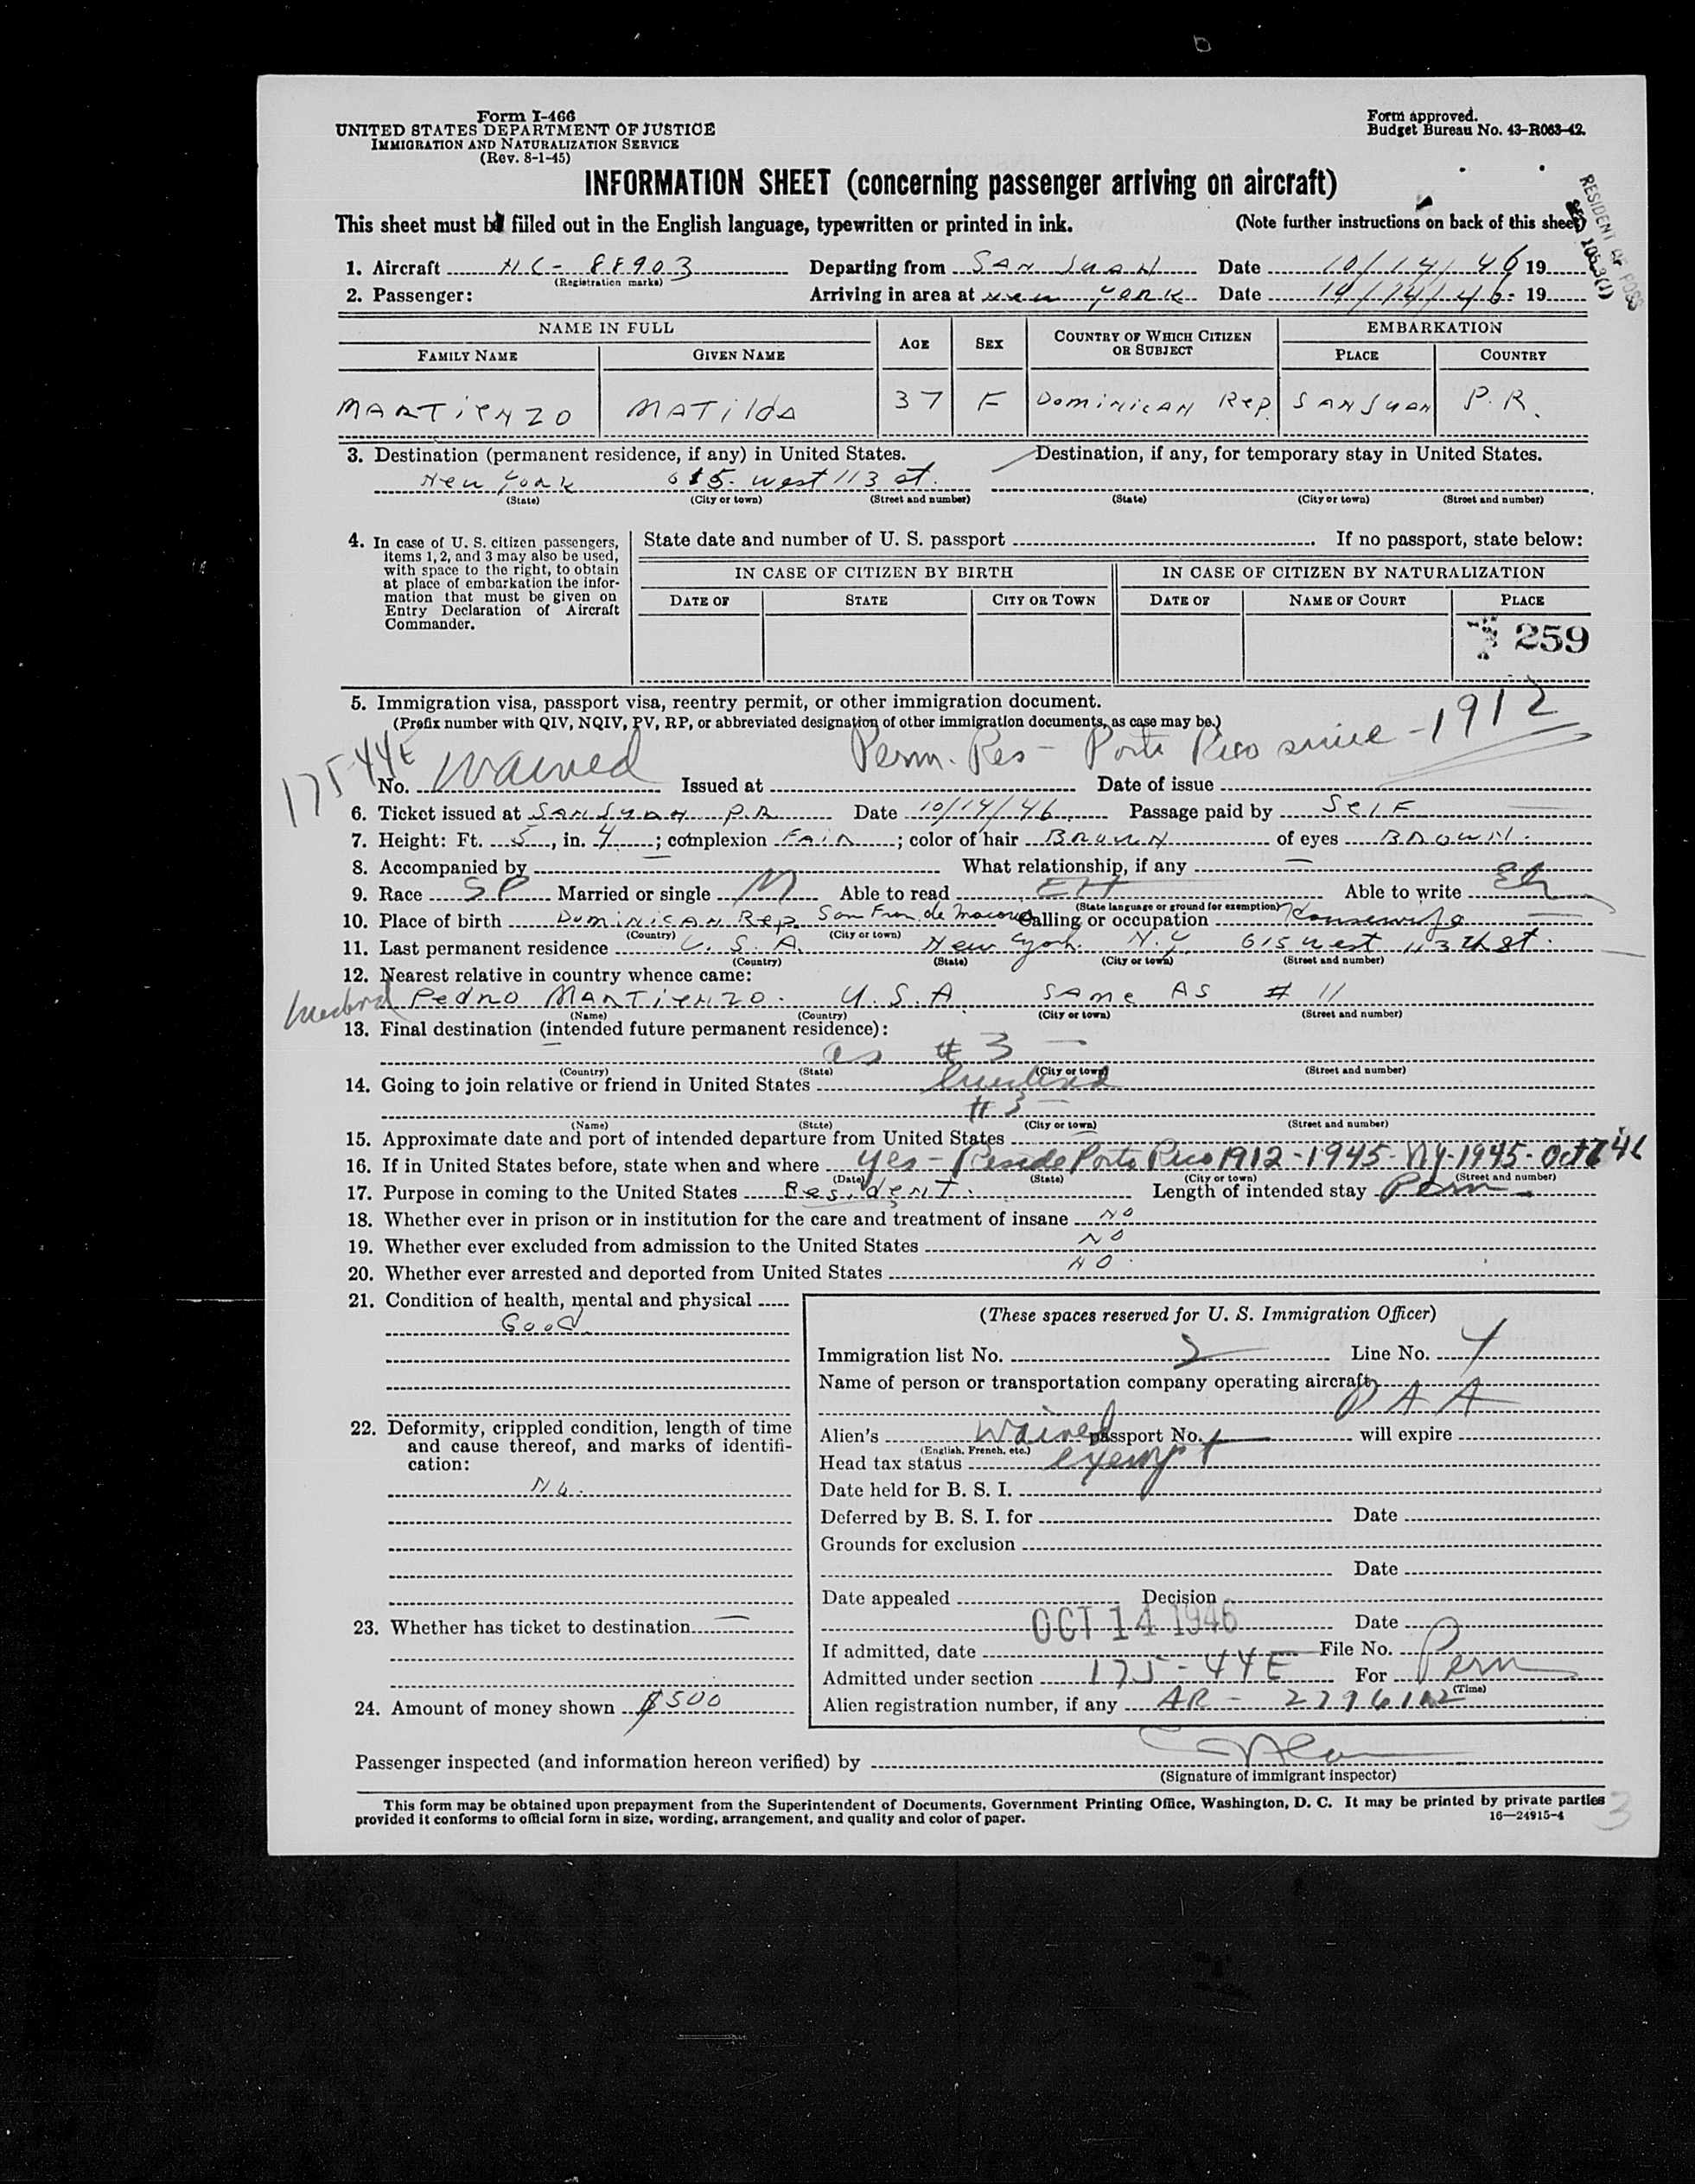 Form I-466
UNITED STATES DEPARTMENT OF JUSTICE
IMMIGRATION AND NATURALIZATION SERVICE
(Rev. 8-1-45)
Form approved.
Budget Bureau No. 43-R063-42.
INFORMATION SHEET (concerning passenger arriving on aircraft)
This sheet must be filled out in the English language, typewritten or printed in ink. (Note further instructions on back of this sheet)
RESIDENT OF POSS
105.3(1)
1. Aircraft NC-88903 Departing from SAN JUAN Date 10/14/46 19
(Registration marks)
2. Passenger: Arriving in area at New York Date 10/14/46- 19
NAME IN FULL AGE SEX COUNTRY OF WHICH CITIZEN OR SUBJECT EMBARKATION
FAMILY NAME GIVEN NAME PLACE COUNTRY
MARTiENZO MATilda 37 F DOMINICAN Rep. SAN JUAN P.R.
3. Destination (permanent residence, if any) in United States. Destination, if any, for temporary stay in United States.
New York 615 west 113 st.
(State) (City or town) (Street and number) (State) (City or town) (Street and number)
4. In case of U. S. citizen passengers, items 1, 2, and 3 may also be used, with space to the right, to obtain at place of embarkation the information that must be given on Entry Declaration of Aircraft Commander.
State date and number of U. S. passport If no passport, state below:
IN CASE OF CITIZEN BY BIRTH IN CASE OF CITIZEN BY NATURALIZATION
DATE OF STATE CITY OR TOWN DATE OF NAME OF COURT PLACE
259
5. Immigration visa, passport visa, reentry permit, or other immigration document.
(Prefix number with QIV, NQIV, PV, RP, or abbreviated designation of other immigration documents, as case may be.)
175-44E Perm. Res - Porto Rico since - 1912
No. Waived Issued at Date of issue
6. Ticket issued at SAN JUAN P.R Date 10/14/46 Passage paid by SelF
7. Height: Ft. 5, in. 4; complexion FAIR; color of hair BROWN of eyes BROWN.
8. Accompanied by — What relationship, if any —
9. Race SP Married or single M Able to read Able to write
(State language or ground for exemption)
10. Place of birth DOMINICAN Rep. San Fran. de Macoris Calling or occupation Housewife
(Country) (City or town)
11. Last permanent residence U.S.A. New York N.Y 615 west 113th st.
(Country) (State) (City or town) (Street and number)
12. Nearest relative in country whence came:
husband Pedro MARTiENZO. U.S.A SAme AS # 11
(Name) (Country) (City or town) (Street and number)
13. Final destination (intended future permanent residence):
as # 3
(Country) (State) (City or town) (Street and number)
14. Going to join relative or friend in United States husband
# 3
(Name) (State) (City or town) (Street and number)
15. Approximate date and port of intended departure from United States
16. If in United States before, state when and where yes - Reside Porto Rico 1912-1945- Ny-1945- Oct 46
(Date) (State) (City or town) (Street and number)
17. Purpose in coming to the United States Resident. Length of intended stay Perm
18. Whether ever in prison or in institution for the care and treatment of insane NO
19. Whether ever excluded from admission to the United States NO
20. Whether ever arrested and deported from United States NO
21. Condition of health, mental and physical
Good
22. Deformity, crippled condition, length of time and cause thereof, and marks of identification:
No.
23. Whether has ticket to destination —
24. Amount of money shown $500
(These spaces reserved for U. S. Immigration Officer)
Immigration list No. 2 Line No. 4
Name of person or transportation company operating aircraft
PAA
Alien's Waived passport No. will expire
(English, French, etc.)
Head tax status exempt
Date held for B. S. I.
Deferred by B. S. I. for Date
Grounds for exclusion
Date
Date appealed Decision
OCT 14 1946 Date
If admitted, date File No.
Admitted under section 175-44E For Perm
(Time)
Alien registration number, if any AR-
Passenger inspected (and information hereon verified) by
(Signature of immigrant inspector)
This form may be obtained upon prepayment from the Superintendent of Documents, Government Printing Office, Washington, D. C. It may be printed by private parties
provided it conforms to official form in size, wording, arrangement, and quality and color of paper. 16—24915-4
3